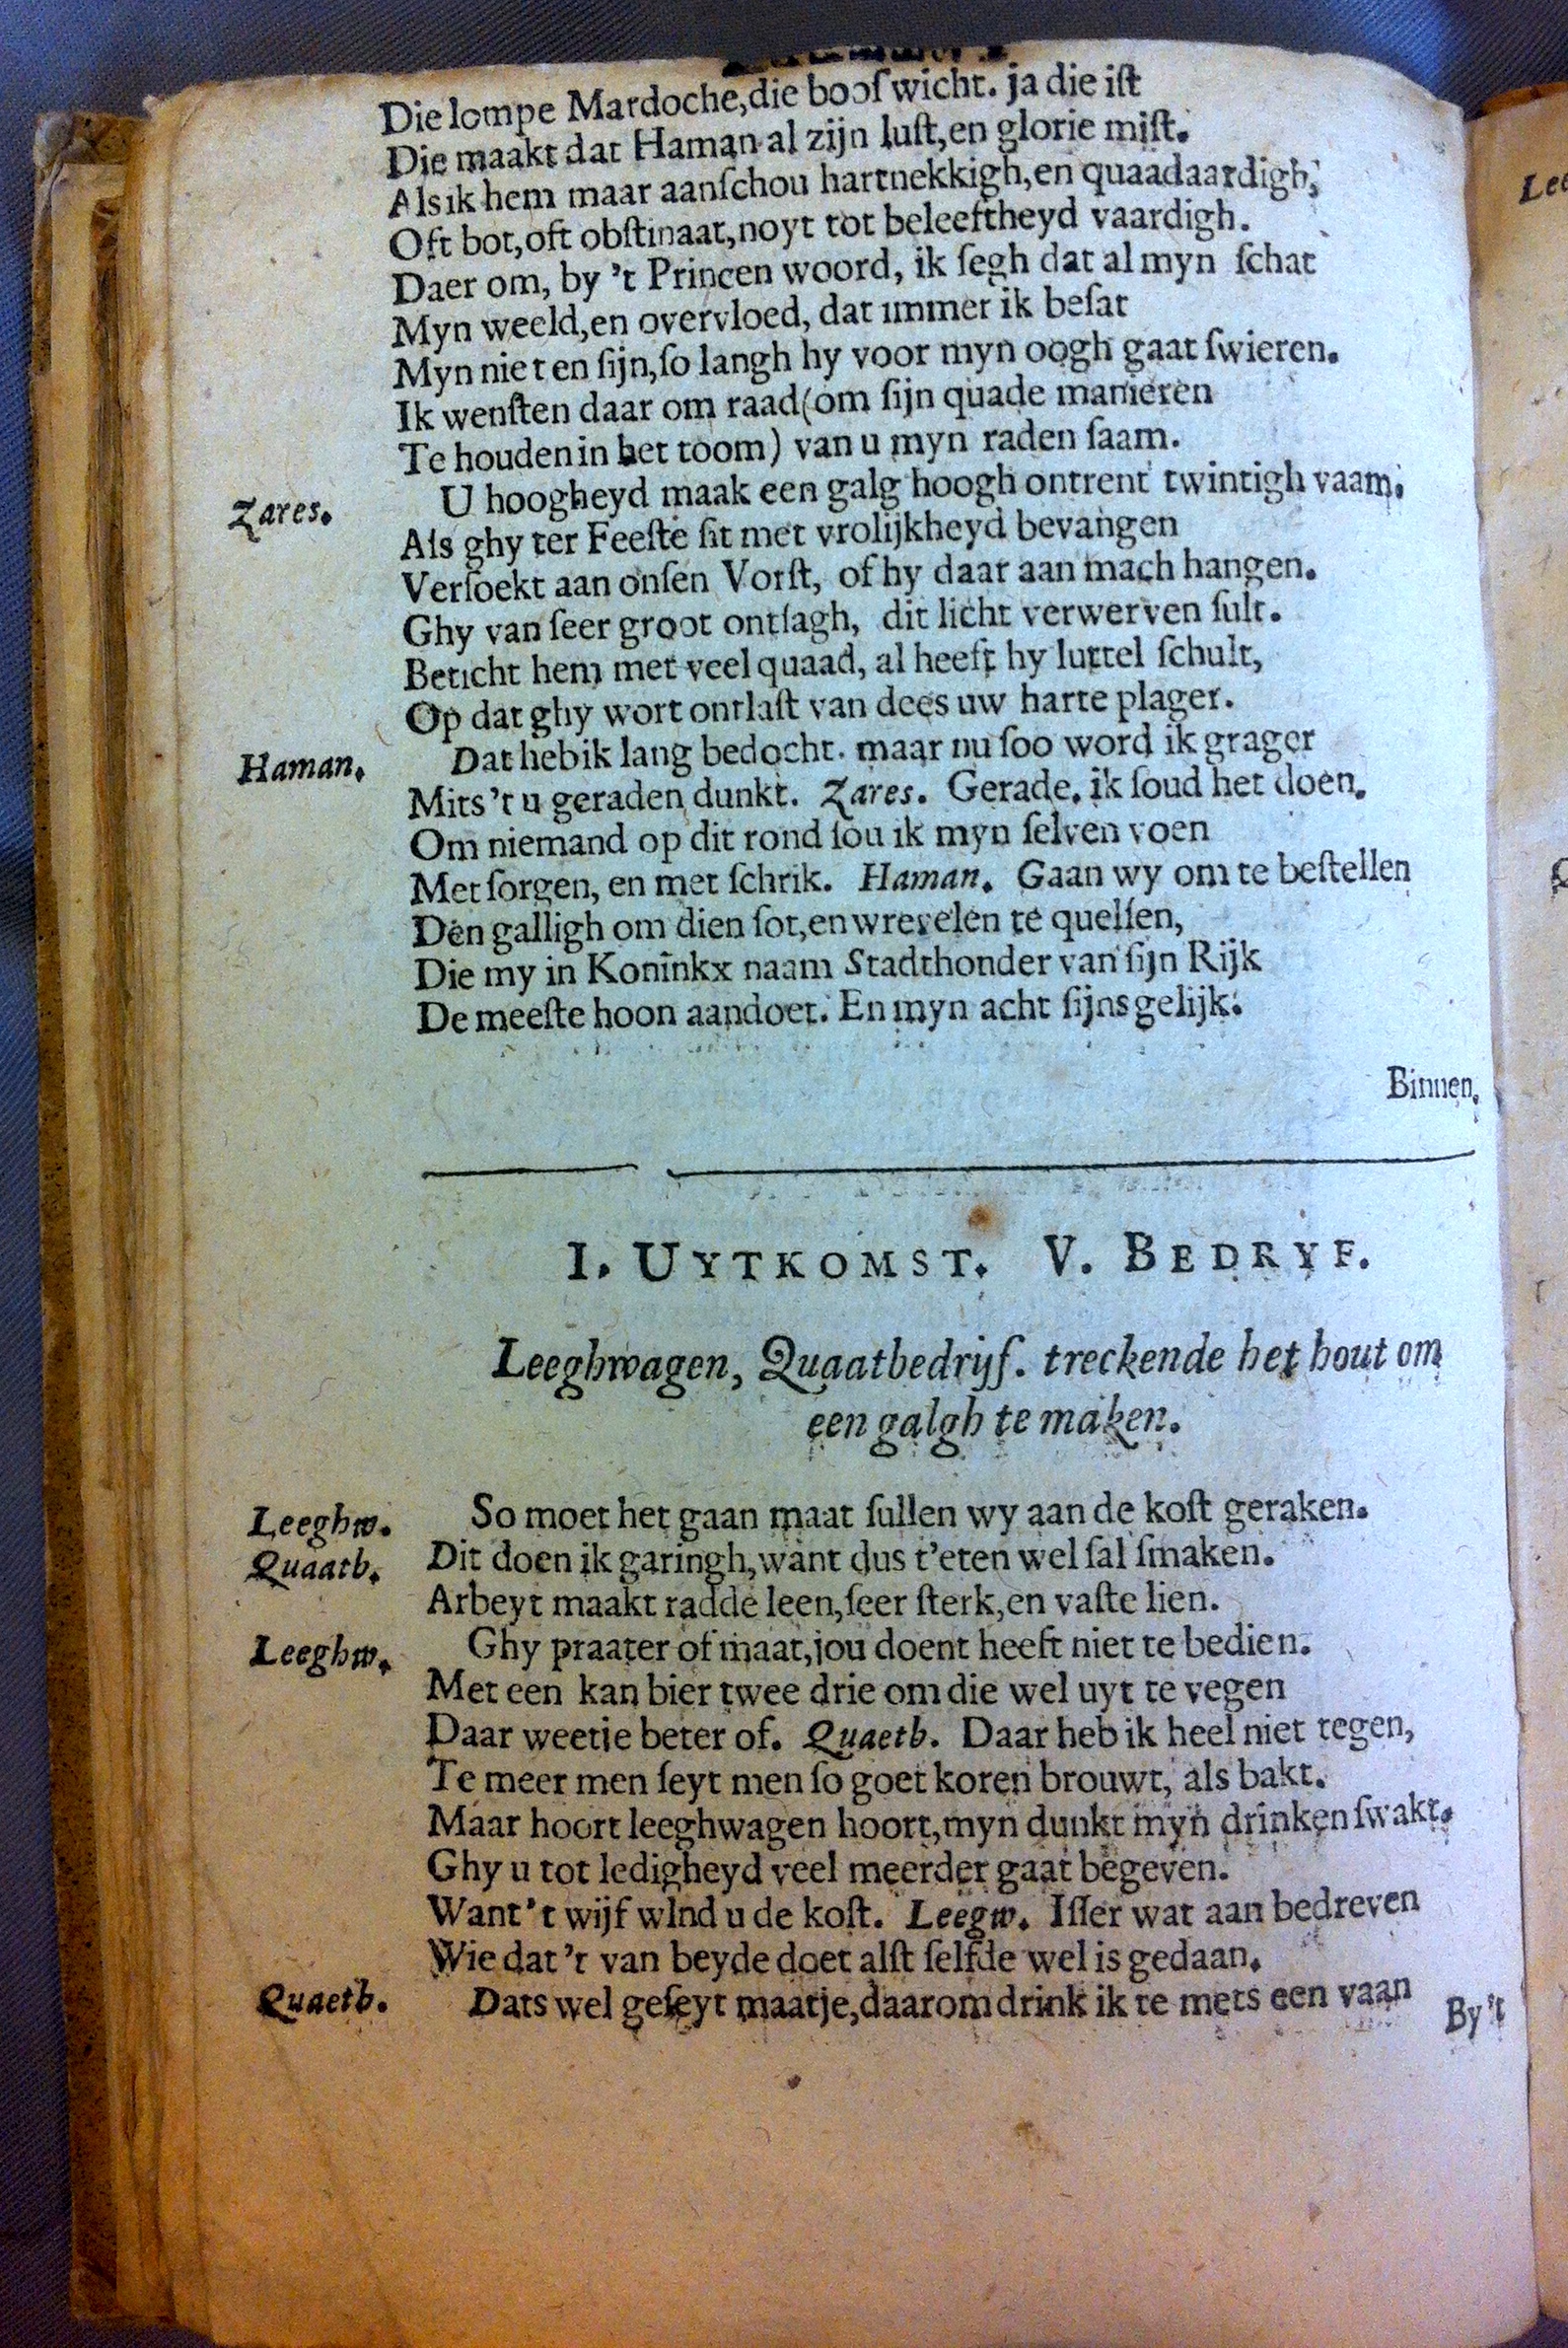 Die lompe Mardoche, die booſwicht. ja die iſt
Die maakt dat Haman al zijn luſt, en glorie miſt.
Als ik hem maar aanſchou hartnekkigh, en quaadaardigh,
Oft bot, oft obſtinaat, noyt tot beleeftheyd vaardigh.
Daer om, by 't Princen woord, ik ſegh dat al myn ſchat
Myn weeld, en overvloed, dat immer ik beſat
Myn niet en ſijn, ſo langh hy voor myn oogh gaat ſwieren.
Ik wenſten daar om raad (om ſijn quade manieren
Te houden in het toom) van u myn raden ſaam.
Zares. U hoogheyd maak een galg hoogh ontrent twintigh vaam,
Als ghy ter Feeſte ſit met vrolijkheyd bevangen
Verſoekt aan onſen Vorſt, of hy daar aan mach hangen.
Ghy van ſeer groot ontſagh, dit licht verwerven ſult.
Beticht hem met veel quaad, al heeft hy luttel ſchult,
Op dat ghy wort ontlaſt van dees uw harte plager.
Haman. Dat heb ik lang bedocht. maar nu ſoo word ik grager
Mits 't u geraden dunkt. Zares. Gerade. ik ſoud het doen.
Om niemand op dit rond ſou ik myn ſelven voen
Met ſorgen, en met ſchrik. Haman. Gaan wy om te beſtellen
Den galligh om dien ſot, en wrevelen te quellen,
Die my in Koninkx naam Stadthonder van ſijn Rijk
De meeſte hoon aandoet. En myn acht ſijns gelijk.
Binnen.
I. UYTKOMST. V. BEDRYF.
Leeghwagen, Quaatbedrijf. treckende het hout om
een galgh te maken.
Leeghw. So moet het gaan maat ſullen wy aan de koſt geraken.
Quaatb. Dit doen ik garingh, want dus t'eten wel ſal ſmaken.
Arbeyt maakt radde leen, ſeer ſterk, en vaſte lien.
Leeghw. Ghy praater of maat, jou doent heeft niet te bedien.
Met een kan bier twee drie om die wel uyt te vegen
Daar weetje beter of. Quaetb. Daar heb ik heel niet tegen,
Te meer men ſeyt men ſo goet koren brouwt, als bakt.
Maar hoort leeghwagen hoort, myn dunkt myn drinken ſwakt.
Ghy u tot ledigheyd veel meerder gaat begeven.
Want 't wijf wlnd u de koſt. Leegw. Iſſer wat aan bedreven
Wie dat 't van beyde doet alſt ſelfde wel is gedaan.
Quaetb. Dats wel geſeyt maatje, daarom drink ik te mets een vaan
By 't